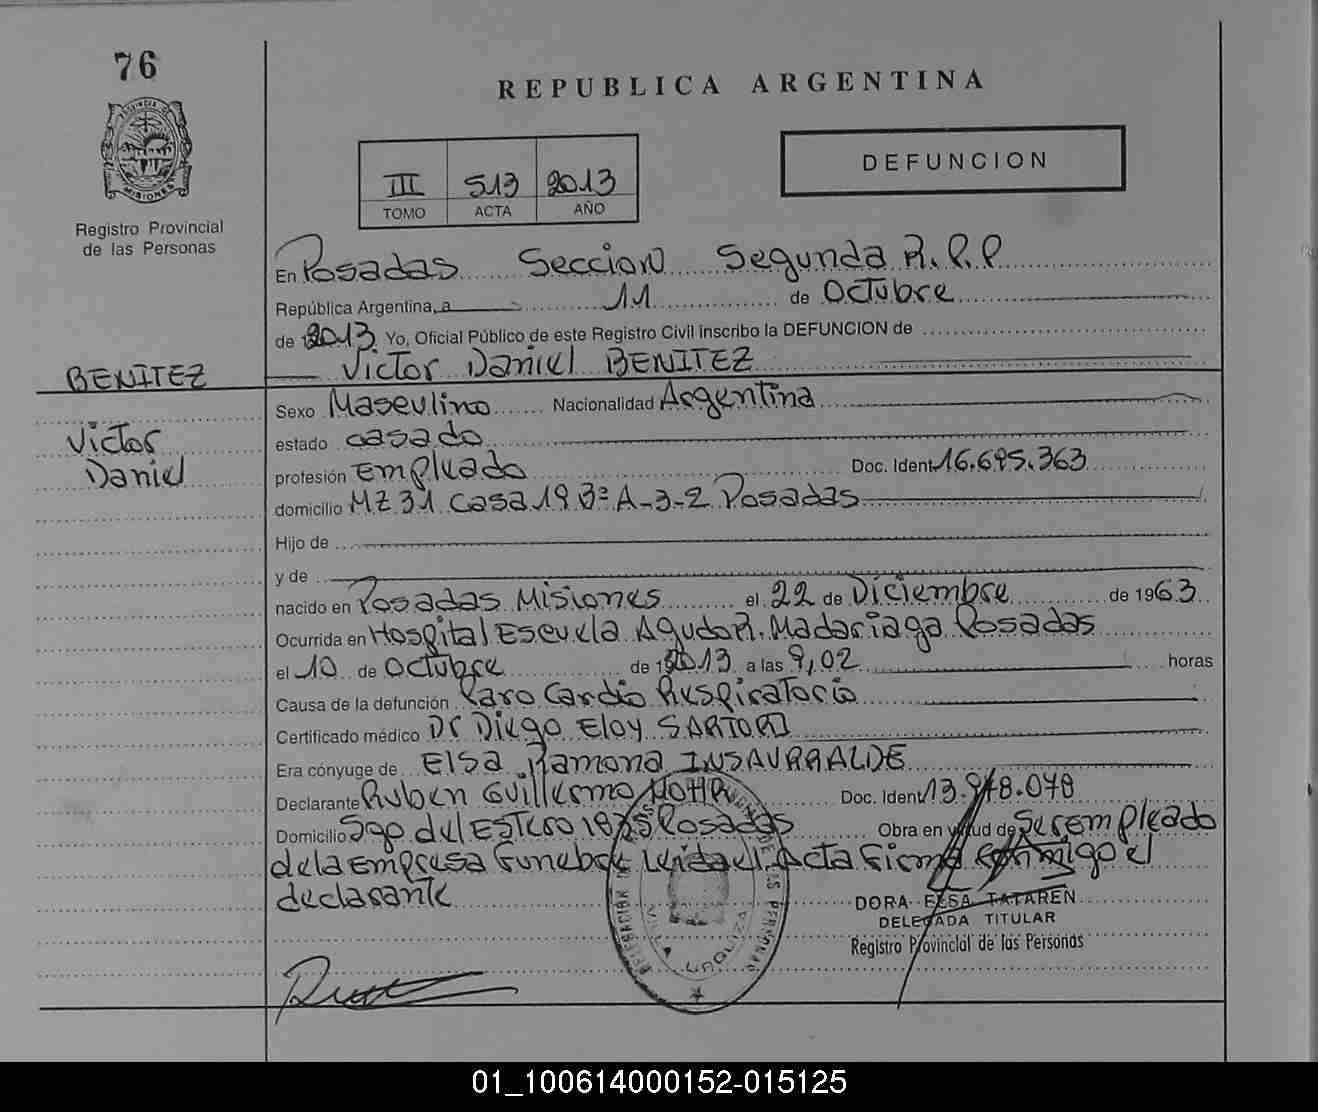 76
REPUBLICA ARGENTINA
DEFUNCION
III 513 2013
TOMO ACTA AÑO
Registro Provincial
de las Personas
En Posadas Seccion Segunda R.P.P
República Argentina, a 11 de Octubre
de 2013 Yo, Oficial Público de este Registro Civil inscribo la DEFUNCION de
BENITEZ
Victor Daniel BENITEZ
Victor
Daniel
Sexo Masculino Nacionalidad Argentina
estado casado
profesión Empleado Doc. Ident. 16.695.363
domicilio MZ 31 Casa 19 Bº A-3-2 Posadas
Hijo de
y de
nacido en Posadas Misiones el 22 de Diciembre de 1963
Ocurrida en Hospital Escuela Agudo R. Madariaga Posadas
el 10 de Octubre de 2013 a las 9,02 horas
Causa de la defunción Paro Cardio Respiratorio
Certificado médico Dr Diego Eloy SARTORI
Era cónyuge de Elsa Ramona INSAURRALDE
Declarante Ruben Guillermo Doc. Ident 13.978.078
Domicilio Sgo del Estero Posadas Obra en virtud de Ser empleado
de la Empresa Funebre Leida el Acta Firma conmigo el
declarante
DORA ELSA TATAREN
DELEGADA TITULAR
Registro Provincial de las Personas
01_100614000152-015125